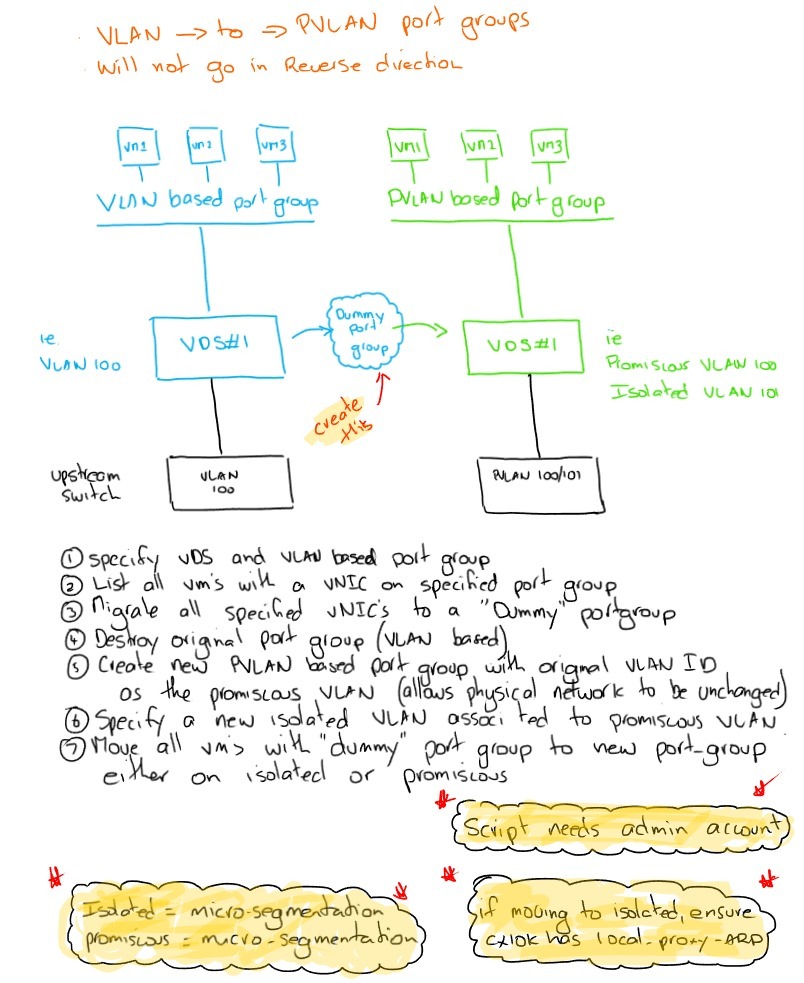 VLAN → to ⇒ PVLAN port groups
Will not go in Reverse direction
vm1 vm2 vm3
vm1 vm2 vm3
VLAN based port group
PVLAN based port group
Dummy port group
ie. VLAN 100
VDS#1
VDS#1
ie
Promiscous VLAN 100
Isolated VLAN 101
create this
upstream switch
VLAN 100
PVLAN 100/101
① specify VDS and VLAN based port group
② List all vm's with a VNIC on specified port group
③ Migrate all specified vNIC's to a "Dummy" portgroup
④ Destroy original port group (VLAN based)
⑤ Create new PVLAN based port group with orignal VLAN ID
as the promiscous VLAN (allows physical network to be unchanged)
⑥ Specify a new isolated VLAN associted to promiscous VLAN
⑦ Move all vm's with "dummy" port group to new port-group
either on isolated or promiscous
Script needs admin account
Isolated = micro-segmentation
promiscous = macro-segmentation
if moving to isolated, ensure
CX10K has local-proxy-ARP